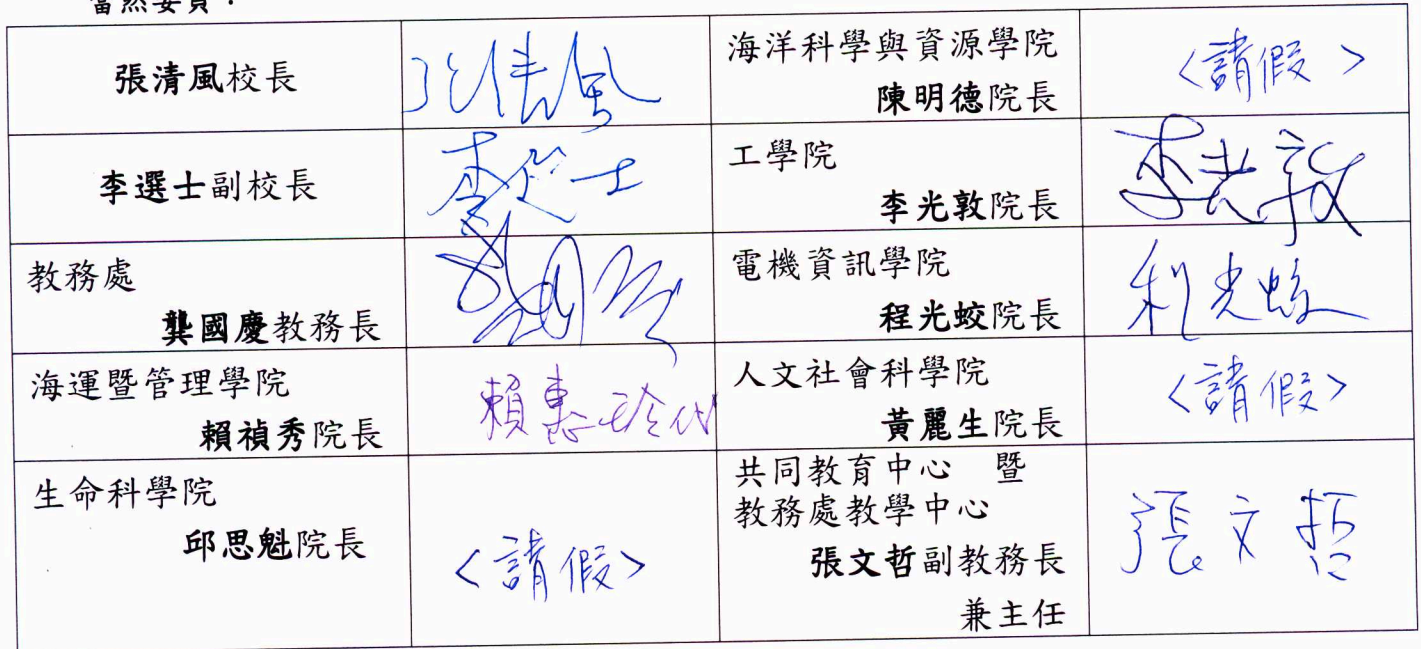 當然委員：
張清風校長
張清風
海洋科學與資源學院
陳明德院長
<請假>
李選士副校長
李選士
工學院
李光敦院長
李光敦
教務處
龔國慶教務長
電機資訊學院
程光蛟院長
程光蛟
海運暨管理學院
賴禎秀院長
賴惠玲代
人文社會科學院
黃麗生院長
<請假>
生命科學院
邱思魁院長
<請假>
共同教育中心　暨
教務處教學中心
張文哲副教務長
兼主任
張文哲